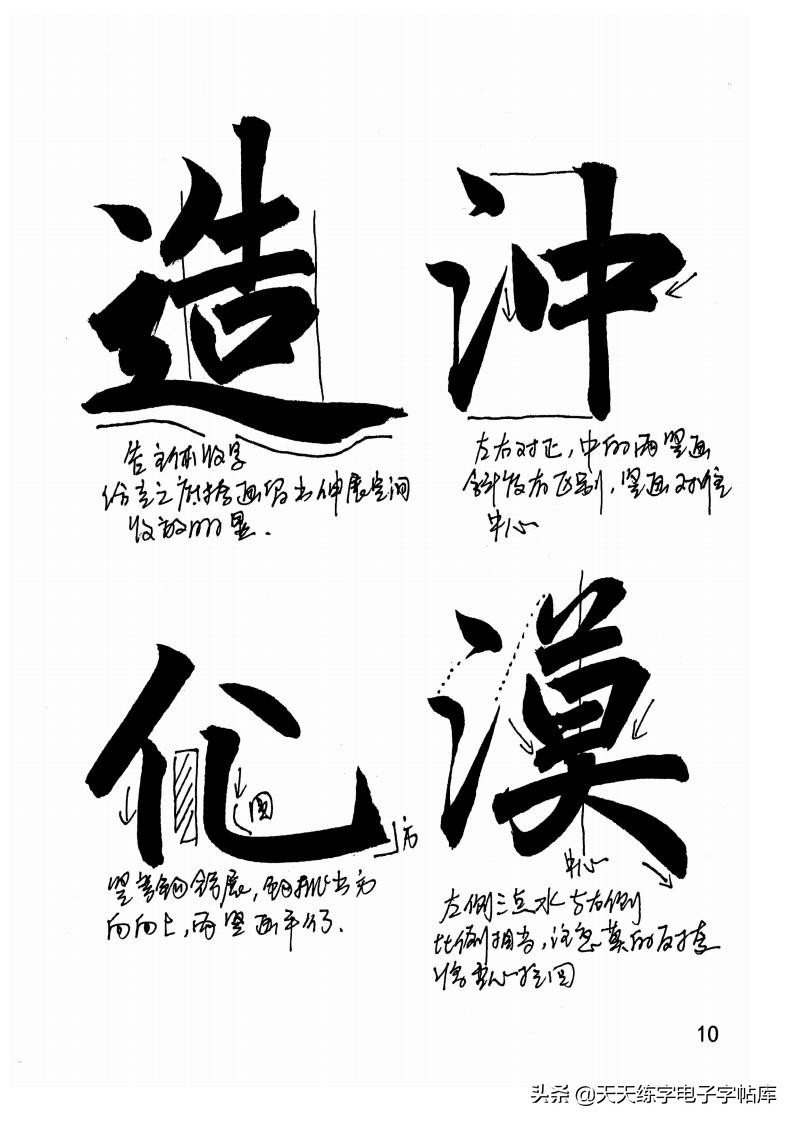 造
告主体收窄
给走之底捺画留出伸展空间
收放明显.
冲
左右对正,中的两竖画
斜度有区别,竖画对准
中心
化
圆
方
竖弯钩舒展,钩挑出方
向向上,两竖画平行.
漠
中心
左侧三点水与右侧
比例相当,注意莫的反捺
10
头条 @天天练字电子字帖库